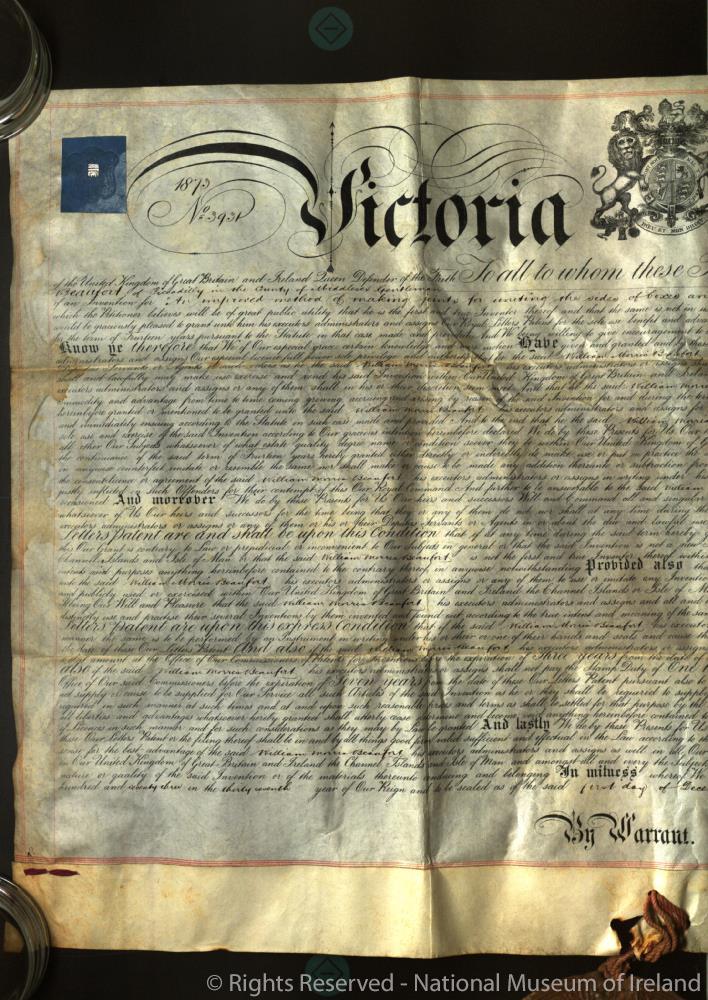 1873
No. 3931
Victoria
DIEU ET MON DROIT
of the United Kingdom of Great Britain and Ireland Queen Defender of the Faith To all to whom these
Beaufort of Piccadilly in the County of Middlesex Gentleman
of an Invention for An improved method of making joints for uniting the sides of boxes an
which the Petitioner believes will be of great public utility that he is the first and true Inventor thereof and that the same is not in us
would be graciously pleased to grant unto him his executors administrators and assigns Our Royal Letters Patent for the sole use benefit and advan
the term of Fourteen years pursuant to the Statute in that case made and provided And We being willing to give encouragement to
Know ye therefore that We of Our especial grace certain knowledge and mere motion Have given and granted and by these
administrators and assigns Our especial licence full power sole privilege and authority that he the said William Morris Beaufort
his executors administrators or assigns
and lawfully make use exercise and vend the said Invention within Our United Kingdom of Great Britain and Ireland
executors administrators and assigns or any of them shall in his or their discretion and that he the said William Morri
commodity and advantage from time to time coming growing accruing and arising by reason of the said Invention for and during the ter
hereinbefore granted or mentioned to be granted unto the said William Morris Beaufort his executors administrators and assigns for
and immediately ensuing according to the Statute in such case made and provided And to the end that he the said William Morris
sole use and exercise of the said Invention according to Our gracious intention hereinbefore declared We do by these Presents for Us Our
all other Our Subjects whatsoever of what estate quality degree name or condition soever they be within Our United Kingdom of G
the continuance of the said term of Fourteen years hereby granted either directly or indirectly do make use or put in practice the
in anywise counterfeit imitate or resemble the same nor shall make or cause to be made any addition thereunto or subtraction from
the consent licence or agreement of the said William Morris Beaufort his executors administrators or assigns in writing under his
justly inflicted on such Offenders for their contempt of this Our Royal Command And further to be answerable to the said William
occasioned And moreover We do by these Presents for Us Our heirs and successors Will and Command all and singular
whatsoever of Us Our heirs and successors for the time being that they or any of them do not nor shall at any time during the
executors administrators or assigns or any of them or his or their Deputies Servants or Agents in or about the due and lawful use
Letters Patent are and shall be upon this Condition that if at any time during the said term hereby
this Our Grant is contrary to Law or prejudicial or inconvenient to Our Subjects in general or that the said Invention is not a ne
Channel Islands and Isle of Man or that the said William Morris Beaufort is not the first and true Inventor thereof within
intents and purposes anything hereinbefore contained to the contrary thereof in anywise notwithstanding Provided also that
unto the said William Morris Beaufort his executors administrators or assigns or any of them to use or imitate any Invention
and publicly used or exercised within Our United Kingdom of Great Britain and Ireland the Channel Islands or Isle of M
it being Our Will and Pleasure that the said William Morris Beaufort his executors administrators and assigns and all and
distinctly use and practise their several Inventions by them invented and found out according to the true intent and meaning of the sam
Letters Patent are upon this express Condition that if the said William Morris Beaufort his executor
manner the same is to be performed by an Instrument in writing under his or their or one of their hands and seals and cause the
the date of these Our Letters Patent And also if the said William Morris Beaufort his executors administrators or assigns
Office of Our Commissioners of Patents for Inventions the expiration of Three years from the date
also if the said William Morris Beaufort his executors administrators or assigns shall not pay the Stamp Duty of One
Office of Our said Commissioners before the expiration of Seven years from the date of these Our Letters Patent pursuant also
not supply or cause to be supplied for Our Service all such Articles of the said Invention as he or they shall be required to supply
required in such manner at such times and at and upon such reasonable prices and terms as shall be settled for that purpose by the
all liberties and advantages whatsoever hereby granted shall utterly cease determine and become void anything hereinbefore contained to
of Licences in such manner and for such considerations as they may by Law be granted And lastly We do by these Presents for U
these Our Letters Patent or the filing thereof shall be in and by all things good firm valid sufficient and effectual in the Law according to th
sense for the best advantage of the said William Morris Beaufort his executors administrators and assigns as well in all Our
in Our United Kingdom of Great Britain and Ireland the Channel Islands and Isle of Man and amongst all and every the Subjects
nature or quality of the said Invention or of the materials thereunto conducing and belonging In witness whereof We
hundred and seventy three in the thirty seventh year of Our Reign and to be sealed as of the said first day of Dece
By Warrant.
© Rights Reserved - National Museum of Ireland